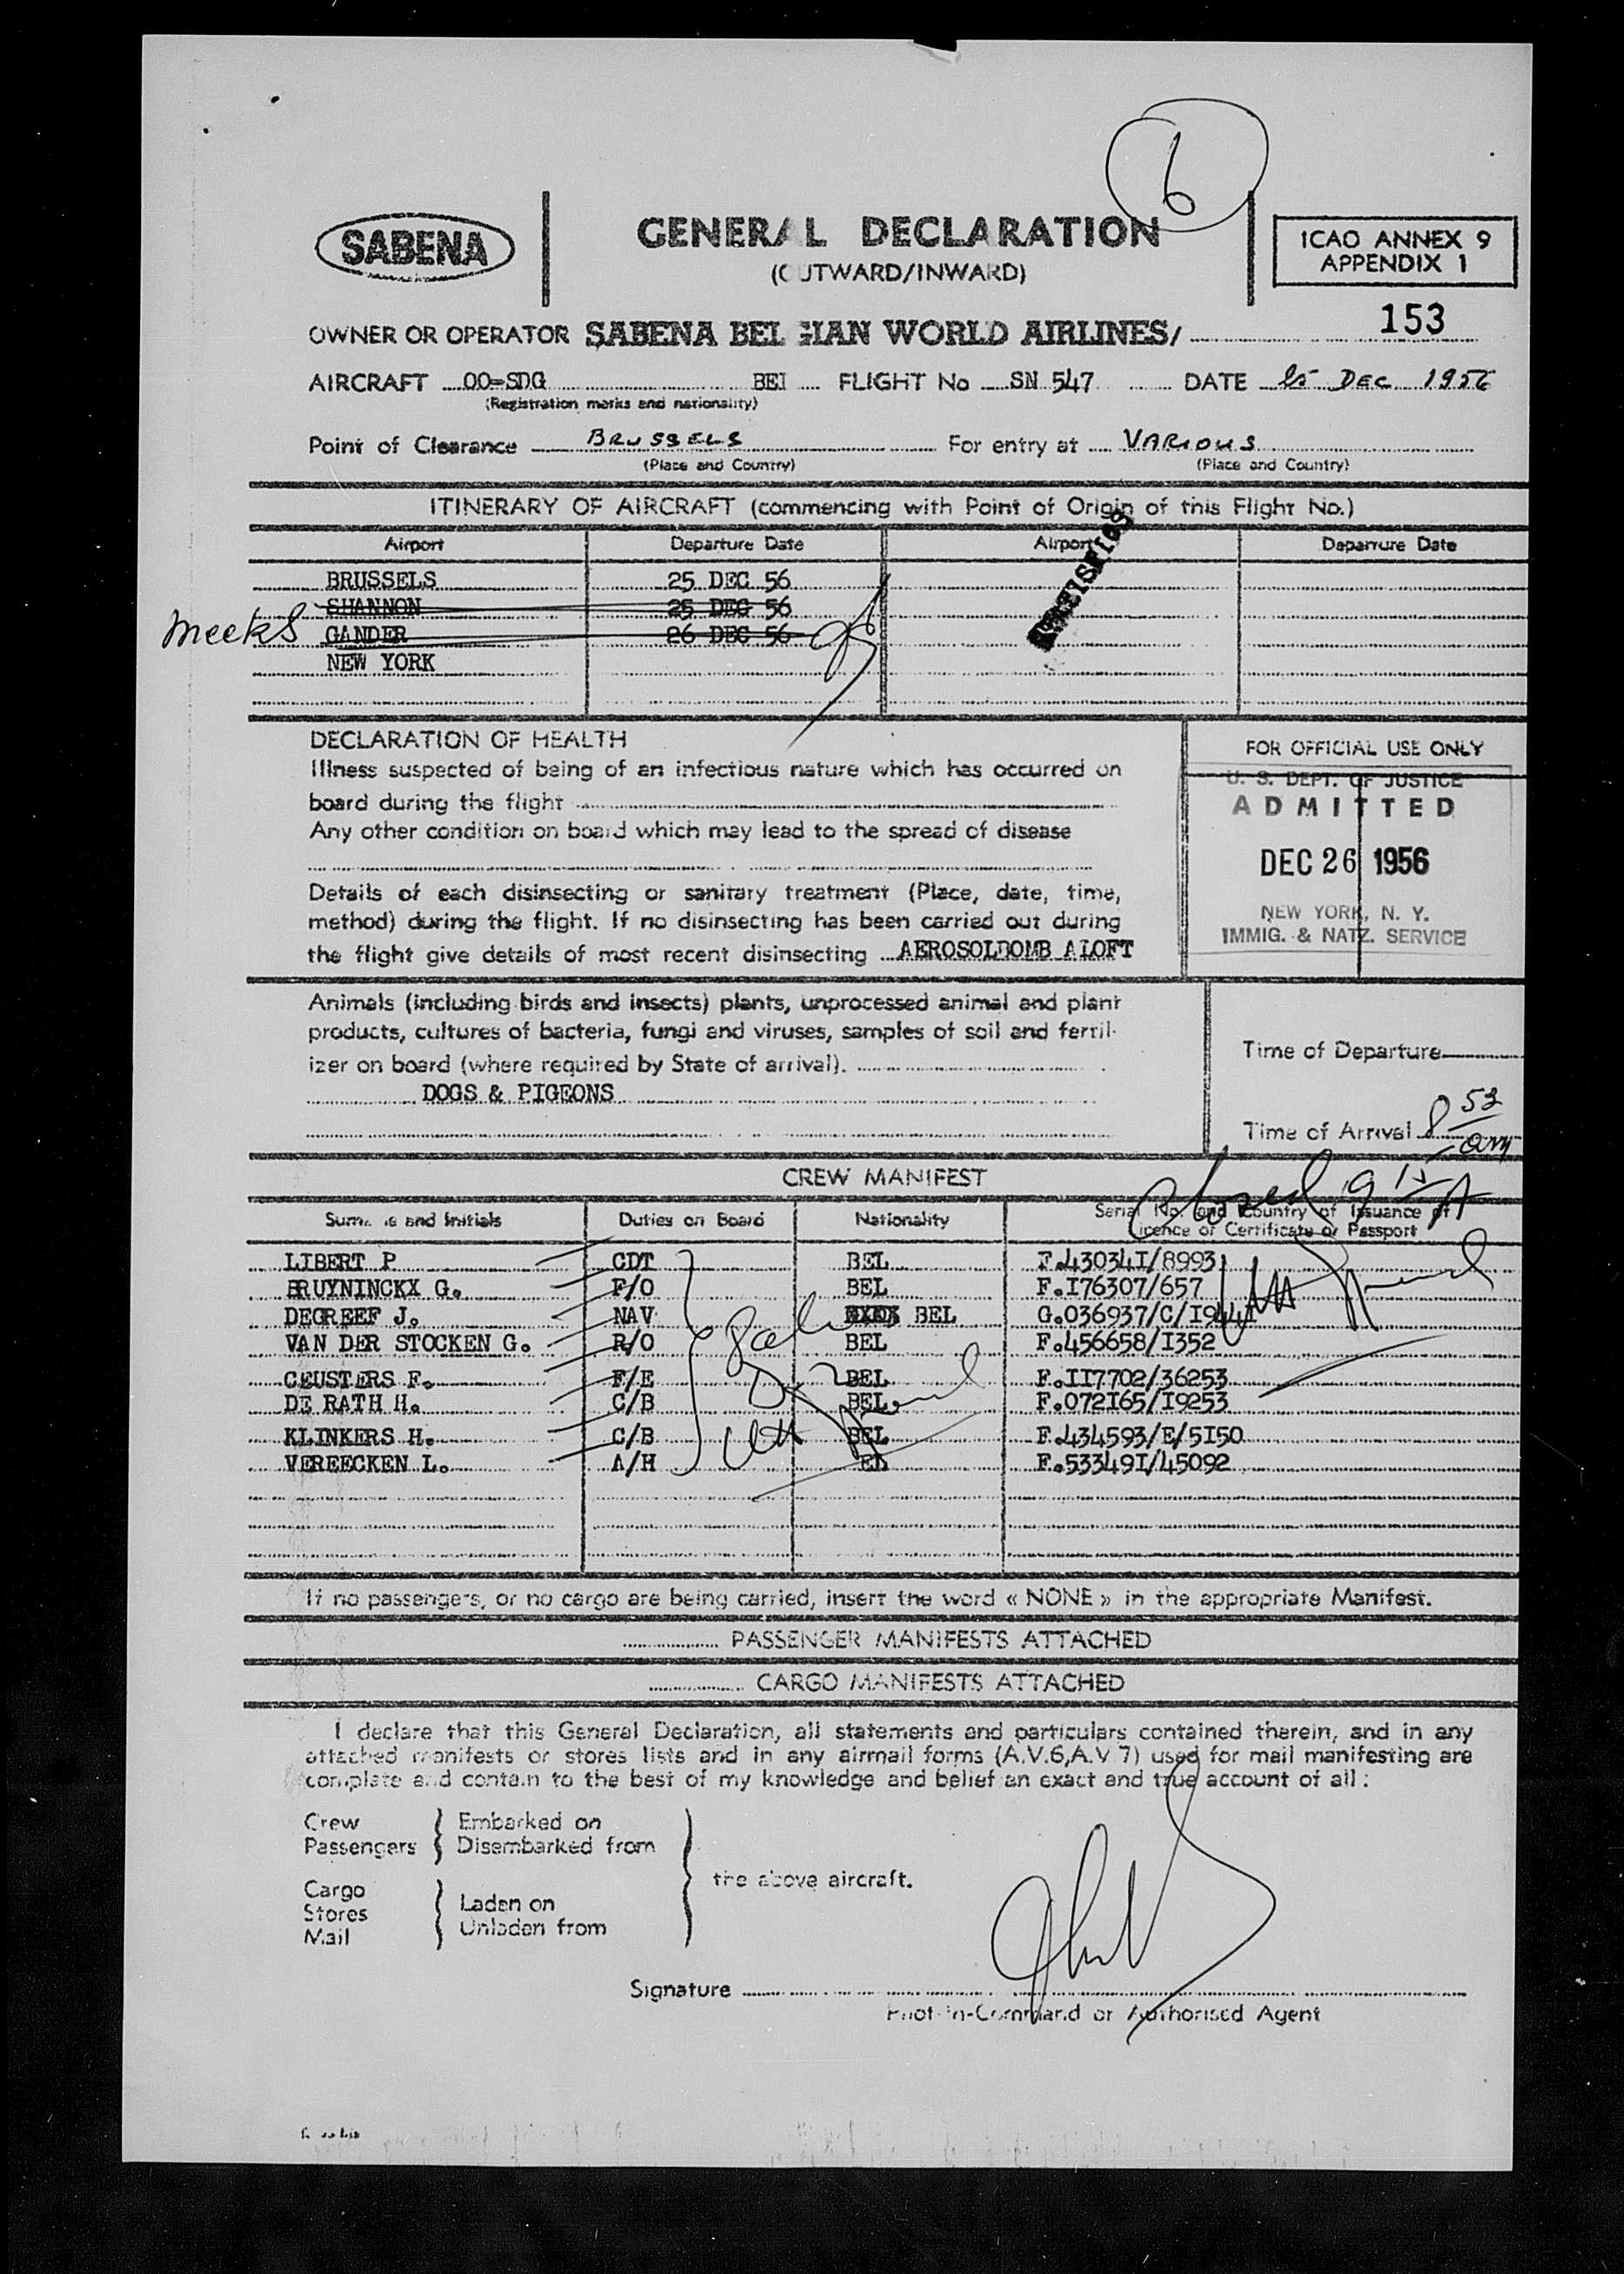 6
SABENA
GENERAL DECLARATION
(OUTWARD/INWARD)
ICAO ANNEX 9
APPENDIX 1
153
OWNER OR OPERATOR SABENA BELGIAN WORLD AIRLINES/
AIRCRAFT OO-SDG BEL FLIGHT No SN 547 DATE 25 DEC 1956
(Registration marks and nationality)
Point of Clearance BRUSSELS For entry at VARIOUS
(Place and Country) (Place and Country)
ITINERARY OF AIRCRAFT (commencing with Point of Origin of this Flight No.)
Airport Departure Date Airport Departure Date
BRUSSELS 25 DEC 56
SHANNON 25 DEC 56
Meeks GANDER 26 DEC 56
NEW YORK
DECLARATION OF HEALTH
Illness suspected of being of an infectious nature which has occurred on
board during the flight
Any other condition on board which may lead to the spread of disease
Details of each disinsecting or sanitary treatment (Place, date, time,
method) during the flight. If no disinsecting has been carried out during
the flight give details of most recent disinsecting AEROSOLBOMB ALOFT
FOR OFFICIAL USE ONLY
U. S. DEPT. OF JUSTICE
ADMITTED
DEC 26 1956
NEW YORK, N. Y.
IMMIG. & NATZ. SERVICE
Animals (including birds and insects) plants, unprocessed animal and plant
products, cultures of bacteria, fungi and viruses, samples of soil and fertil-
izer on board (where required by State of arrival).
DOGS & PIGEONS
Time of Departure
Time of Arrival 8 53 am
CREW MANIFEST
Surname and Initials Duties on Board Nationality Serial No. and Country of Issuance of
Licence or Certificate or Passport
LIBERT P CDT BEL F.43034I/8993
BRUYNINCKX G. F/O BEL F.I76307/657
DEGREEF J. NAV BEL G.036937/C/I9441
VAN DER STOCKEN G. R/O BEL F.456658/I352
CEUSTERS F. F/E BEL F.II7702/36253
DE RATH H. C/B BEL. F.072I65/I9253
KLINKERS H. C/B BEL F.434593/E/5I50
VEREECKEN L. A/H F.53349I/45092
If no passengers, or no cargo are being carried, insert the word « NONE » in the appropriate Manifest.
PASSENGER MANIFESTS ATTACHED
CARGO MANIFESTS ATTACHED
I declare that this General Declaration, all statements and particulars contained therein, and in any
attached manifests or stores lists and in any airmail forms (A.V.6,A.V 7) used for mail manifesting are
complete and contain to the best of my knowledge and belief an exact and true account of all :
Crew Embarked on
Passengers Disembarked from
the above aircraft.
Cargo
Stores Laden on
Mail Unladen from
Signature
Pilot-in-Command or Authorised Agent